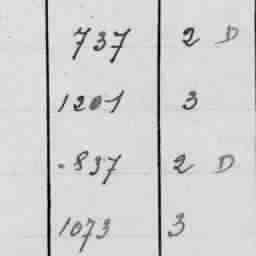 737 2 D
1201 3
837 2 D
1073 3